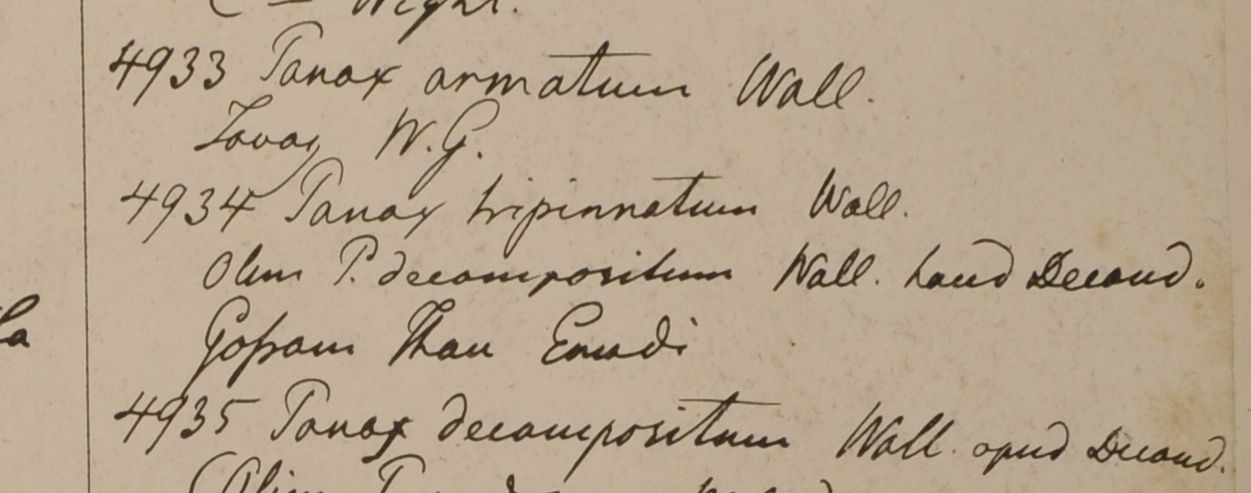 Wight.
4933 Panax armatum Wall.
Tavoy W.G.
4934 Panax tripinnatum Wall.
Olim P. decompositum Wall. haud Decand.
Gossam Than Emodi
4935 Panax decompositum Wall. apud Decand.
(Olim P.